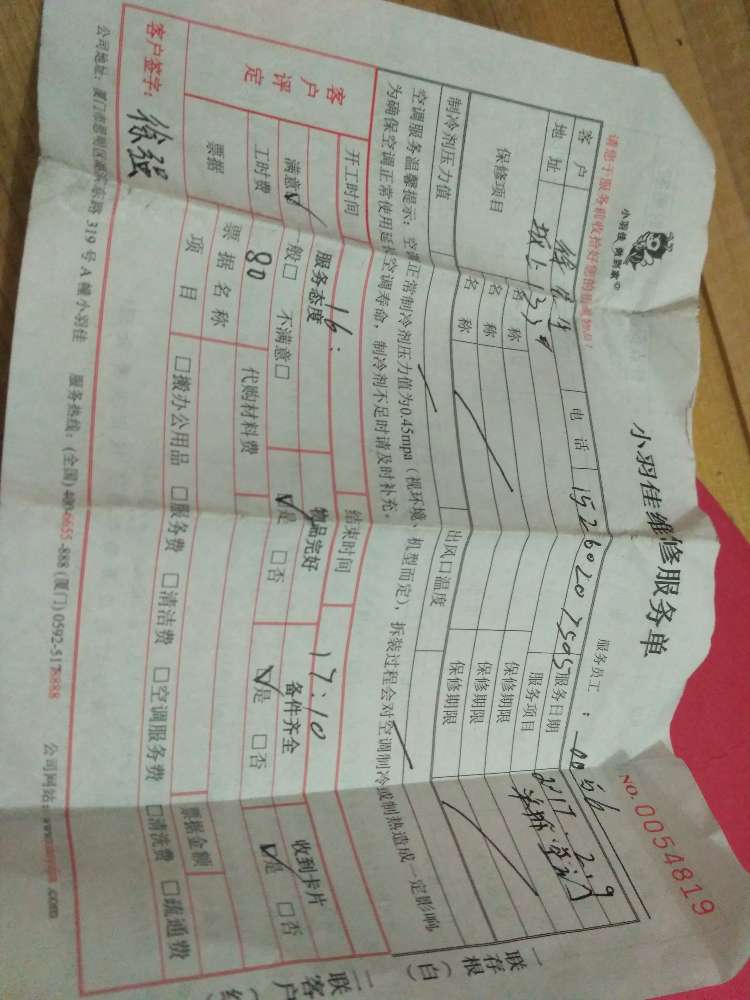 小羽佳 新到家
小羽佳维修服务单
NO. 0054819
请您于服务前收拾好您的贵重物品!
服务员工:
客户地址
电话
服务日期
服务项目
保修项目
名称
保修期限
名称
保修期限
名称
保修期限
制冷剂压力值
出风口温度
空调服务温馨提示:空调正常制冷剂压力值为0.45mpa(视环境、机型而定),拆装过程会对空调制冷或制热造成一定影响
为确保空调正常使用延长空调寿命,制冷剂不足时请及时补充。
开工时间 16:
结束时间 17:10
客户评定
服务态度
物品完好
备件齐全
收到卡片
满意☑ 一般□ 不满意□
☑是 □否
☑是 □否
☑是 □否
工时费 80
代购材料费
票据
票据名称
票据金额
项目
□搬办公用品 □服务费 □清洁费 □空调服务费 □清洗费 □疏通费
客户签字: 徐强
319号A幢小羽佳 服务热线:(全国)400-6655-888(厦门)0592-5178888 公司网站:
一联存根(白)
二联客户